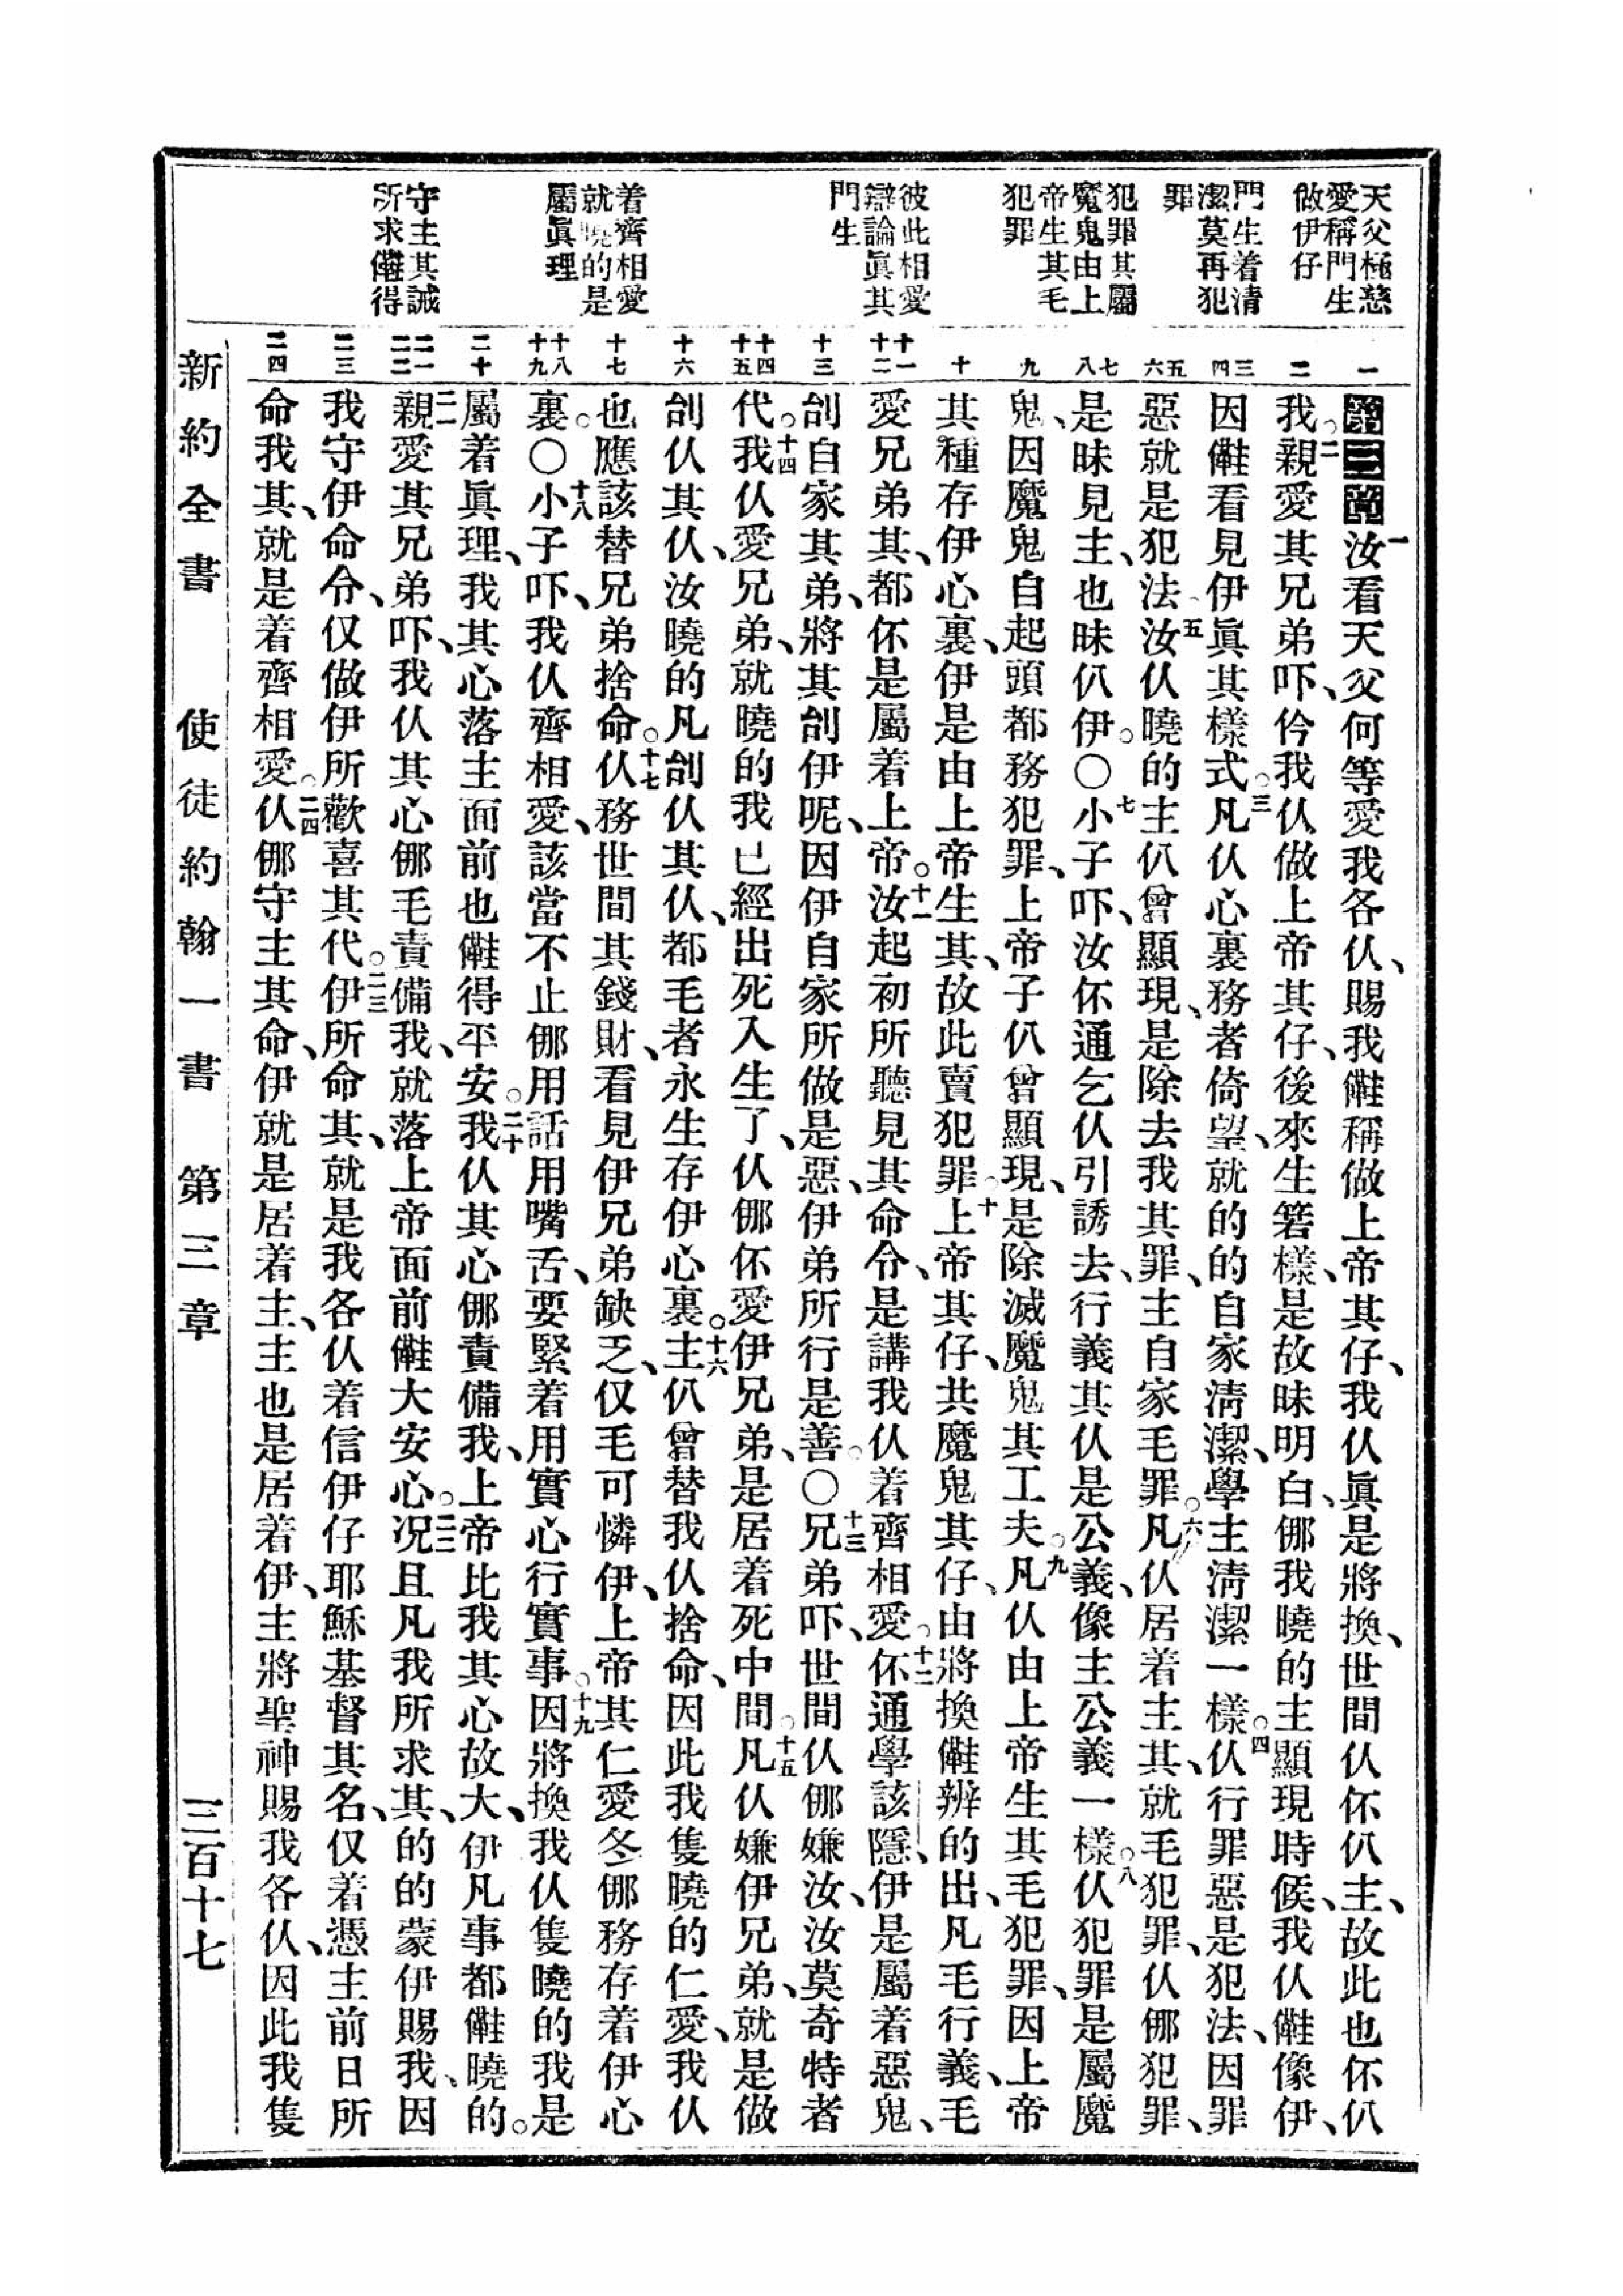 天父極慈
愛稱門生
做伊仔
門生着清
潔莫再犯
罪
犯罪其屬
魔鬼由上
帝生其毛
犯罪
彼此相愛
辯論眞其
門生
着齊相愛
就曉的是
屬眞理
守主其誡
所求得
第三章一汝看天父何等愛我各从、賜我稱做上帝其仔、我从眞是將換、世間从伓仈主、故此也伓仈
我。二親愛其兄弟吓、仱我从做上帝其仔、後來生箬樣、是故昧明白、㑚我曉的主顯現時候、我从像伊、
因看見伊眞其樣式。三凡从心裏務者倚望、就的的自家淸潔、學主淸潔一樣。四从行罪惡是犯法、因罪
惡就是犯法。五汝从曉的主仈曾顯現、是除去我其罪、主自家毛罪。六凡从居着主其、就毛犯罪、从㑚犯罪、
是昧見主、也昧仈伊。〇七小子吓、汝伓通乞从引誘去、行義其从是公義、像主公義一樣。八从犯罪是屬魔
鬼、因魔鬼自起頭都務犯罪、上帝子仈曾顯現、是除滅魔鬼其工夫。九凡从由上帝生其毛犯罪、因上帝
其種存伊心裏、伊是由上帝生其、故此賣犯罪。十上帝其仔、共魔鬼其仔、由將換辨的出、凡毛行義、毛
愛兄弟其、都伓是屬着上帝。十一汝起初所聽見其命令、是講我从着齊相愛。十二伓通學該隱、伊是屬着惡鬼、
刣自家其弟、將其刣伊呢、因伊自家所做是惡、伊弟所行是善。〇十三兄弟吓、世間从㑚嫌汝、汝莫奇特者
代。十四我从愛兄弟、就曉的我已經出死入生了、从㑚伓愛伊兄弟、是居着死中間。十五凡从嫌伊兄弟、就是做
刣从其从、汝曉的凡刣从其从、都毛者永生存伊心裏。十六主仈曾替我从捨命、因此我隻曉的仁愛、我从
也應該替兄弟捨命。十七从務世間其錢財、看見伊兄弟缺乏、仅毛可憐伊、上帝其仁愛冬㑚務存着伊心
裏。〇十八小子吓、我从齊相愛、該當不止㑚用話用嘴舌、要緊着用實心行實事。十九因將換我从隻曉的我是
屬着眞理、我其心落主面前也得平安。二十我从其心㑚責備我、上帝比我其心故大、伊凡事都曉的。
二一親愛其兄弟吓、我从其心㑚毛責備我、就落上帝面前大安心。二二況且凡我所求其、的的蒙伊賜我、因
我守伊命令、仅做伊所歡喜其代。二三伊所命其、就是我各从着信伊仔耶穌基督其名、仅着憑主前日所
命我其、就是着齊相愛。二四从㑚守主其命、伊就是居着主、主也是居着伊、主將聖神賜我各从、因此我隻
新約全書 使徒約翰一書 第三章 三百十七